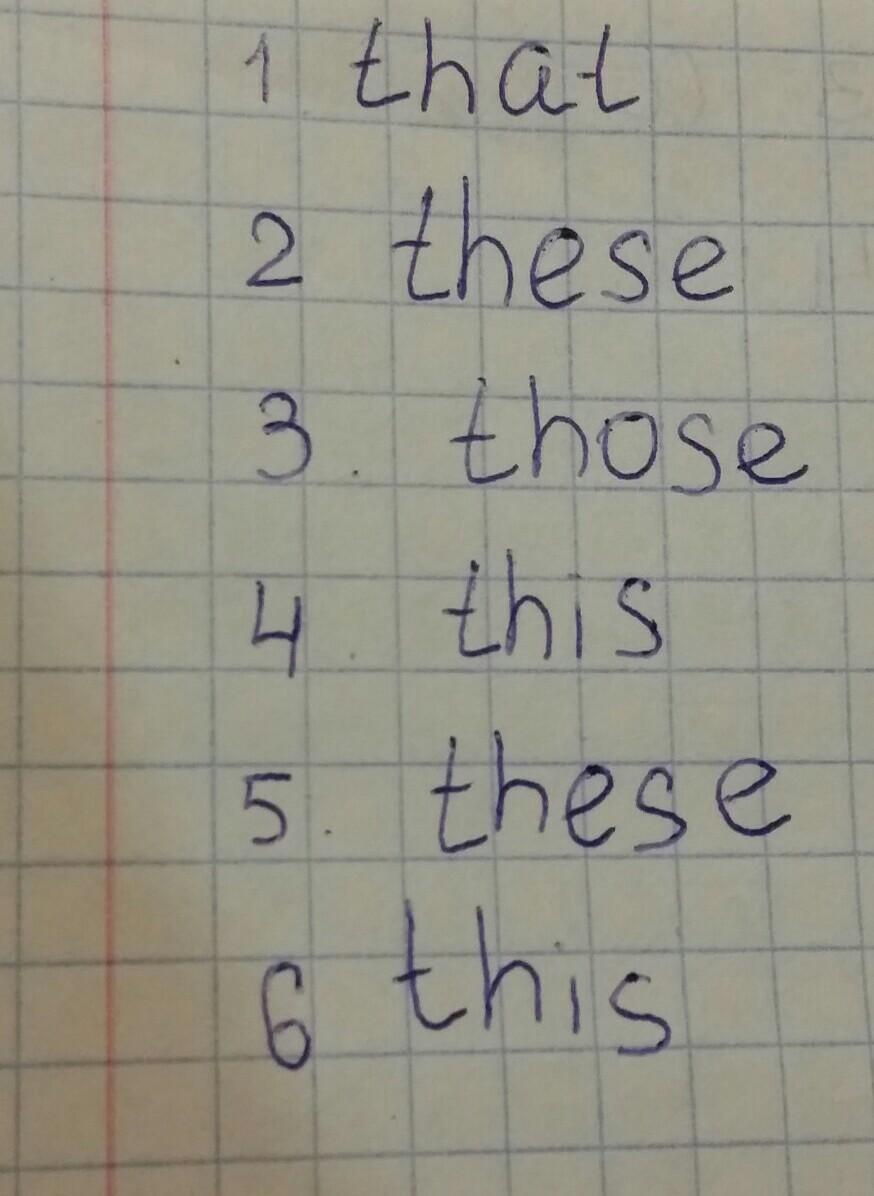 1 that
2 these
3. those
4. this
5. these
6 this